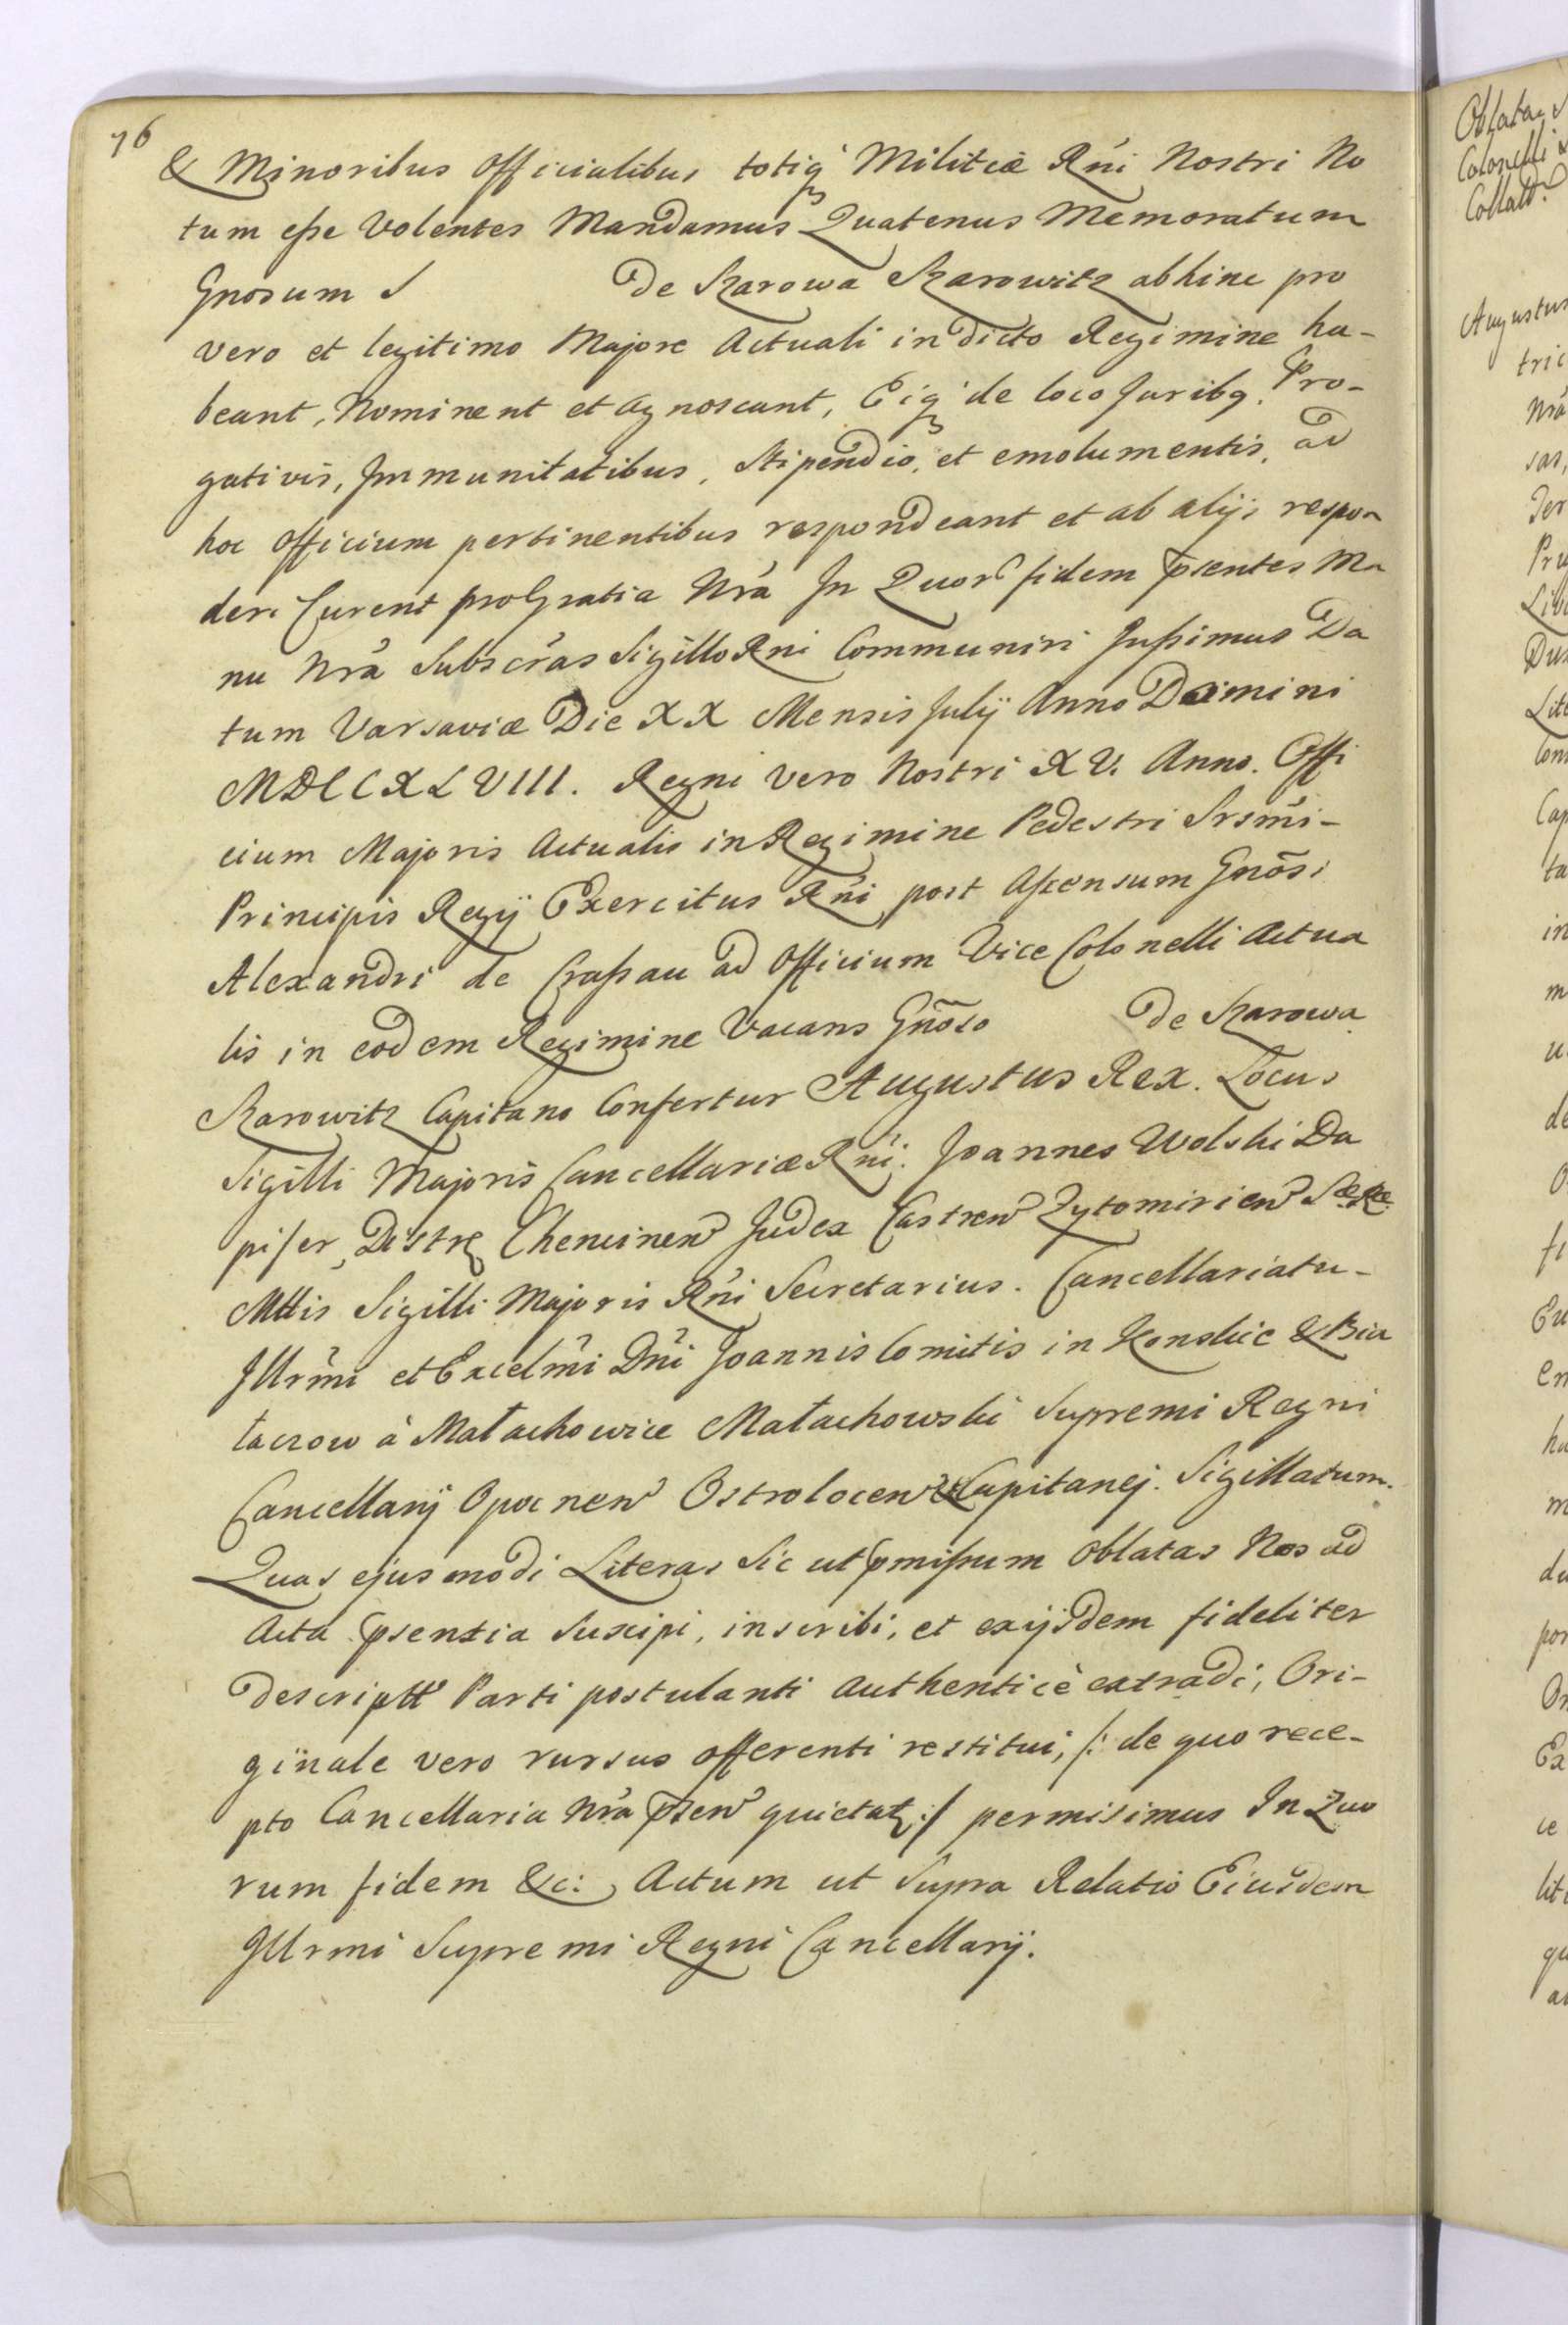 76
& Minoribus Officialibus totiq; Militiæ Rńi Nostri No
tum eße Volentes Mandamus Quatenus Memoratum
Gnosum S de Karowa Karowitz abhinc pro
vero et legitimo Majore Actuali in dicto Regimine ha-
beant, Nominent et agnoscant, Eiq; de loco Juribq. Pro-
gativis, Immunitatibus, Stipendio, et emolumentis, ad
hoc Officium pertinentibus respondeant et ab alijs respon
deri Curent pro Gratia Nŕa In Quor fidem pńtes Ma
nu Nŕa Subscŕas Sigillo Rni Communiri Jußimus Da
tum Varsaviæ Die XX Mensis Julij Anno Domini
MDCCXLVIII. Regni vero Nostri XV. Anno. Offi
cium Majoris Actualis in Regimine Pedestri Srsm̃i-
Principis Regij Exercitus Rńi post Ascensum Gnõsi
Alexandri de Craßau ad Officium Vice Colonelli Actua
lis in eodem Regimine Vacans Gñoso de Karowa
Karowitz Capitano Confertur Augustus Rex. Locus
Sigilli Majoris Cancellariæ Rńi: Joannes Wolski Da
pifer, Distr Chencinen Judex Castren Zytomirien Sæ Ræ
Mttis Sigilli Majoris Rńi Secretarius. Cancellariatu-
Jllrm̃i et Excelm̃i Dńi Joannis Comitis in Konskie & Bia
łaczow à Małachowice Małachowski Supremi Regni
Cancellarij Opocnen Ostrolocen & Capitanej. Sigillatum.
Quas ejusmodi Literas Sic ut pmißum Oblatas Nos ad
Acta psentia Suscipi, inscribi, et exijsdem fideliter
descriptt Parti postulanti Authenticè extradi, Ori-
ginale vero rursus offerenti restitui, /: de quo rece-
pto Cancellaria Nŕa psen quietat :/ permisimus In Quo
rum fidem &c: Actum ut Supra Relatio Eiusdem
Jllrmi Supremi Regni Cancellarij.
Oblata
Colonelli
Collatt
Augustus
tric
Nŕa
sas,
Pru
Lite
Cap
ta
in
m
de
fi
en
ha
m
por
Ex
ce
qu